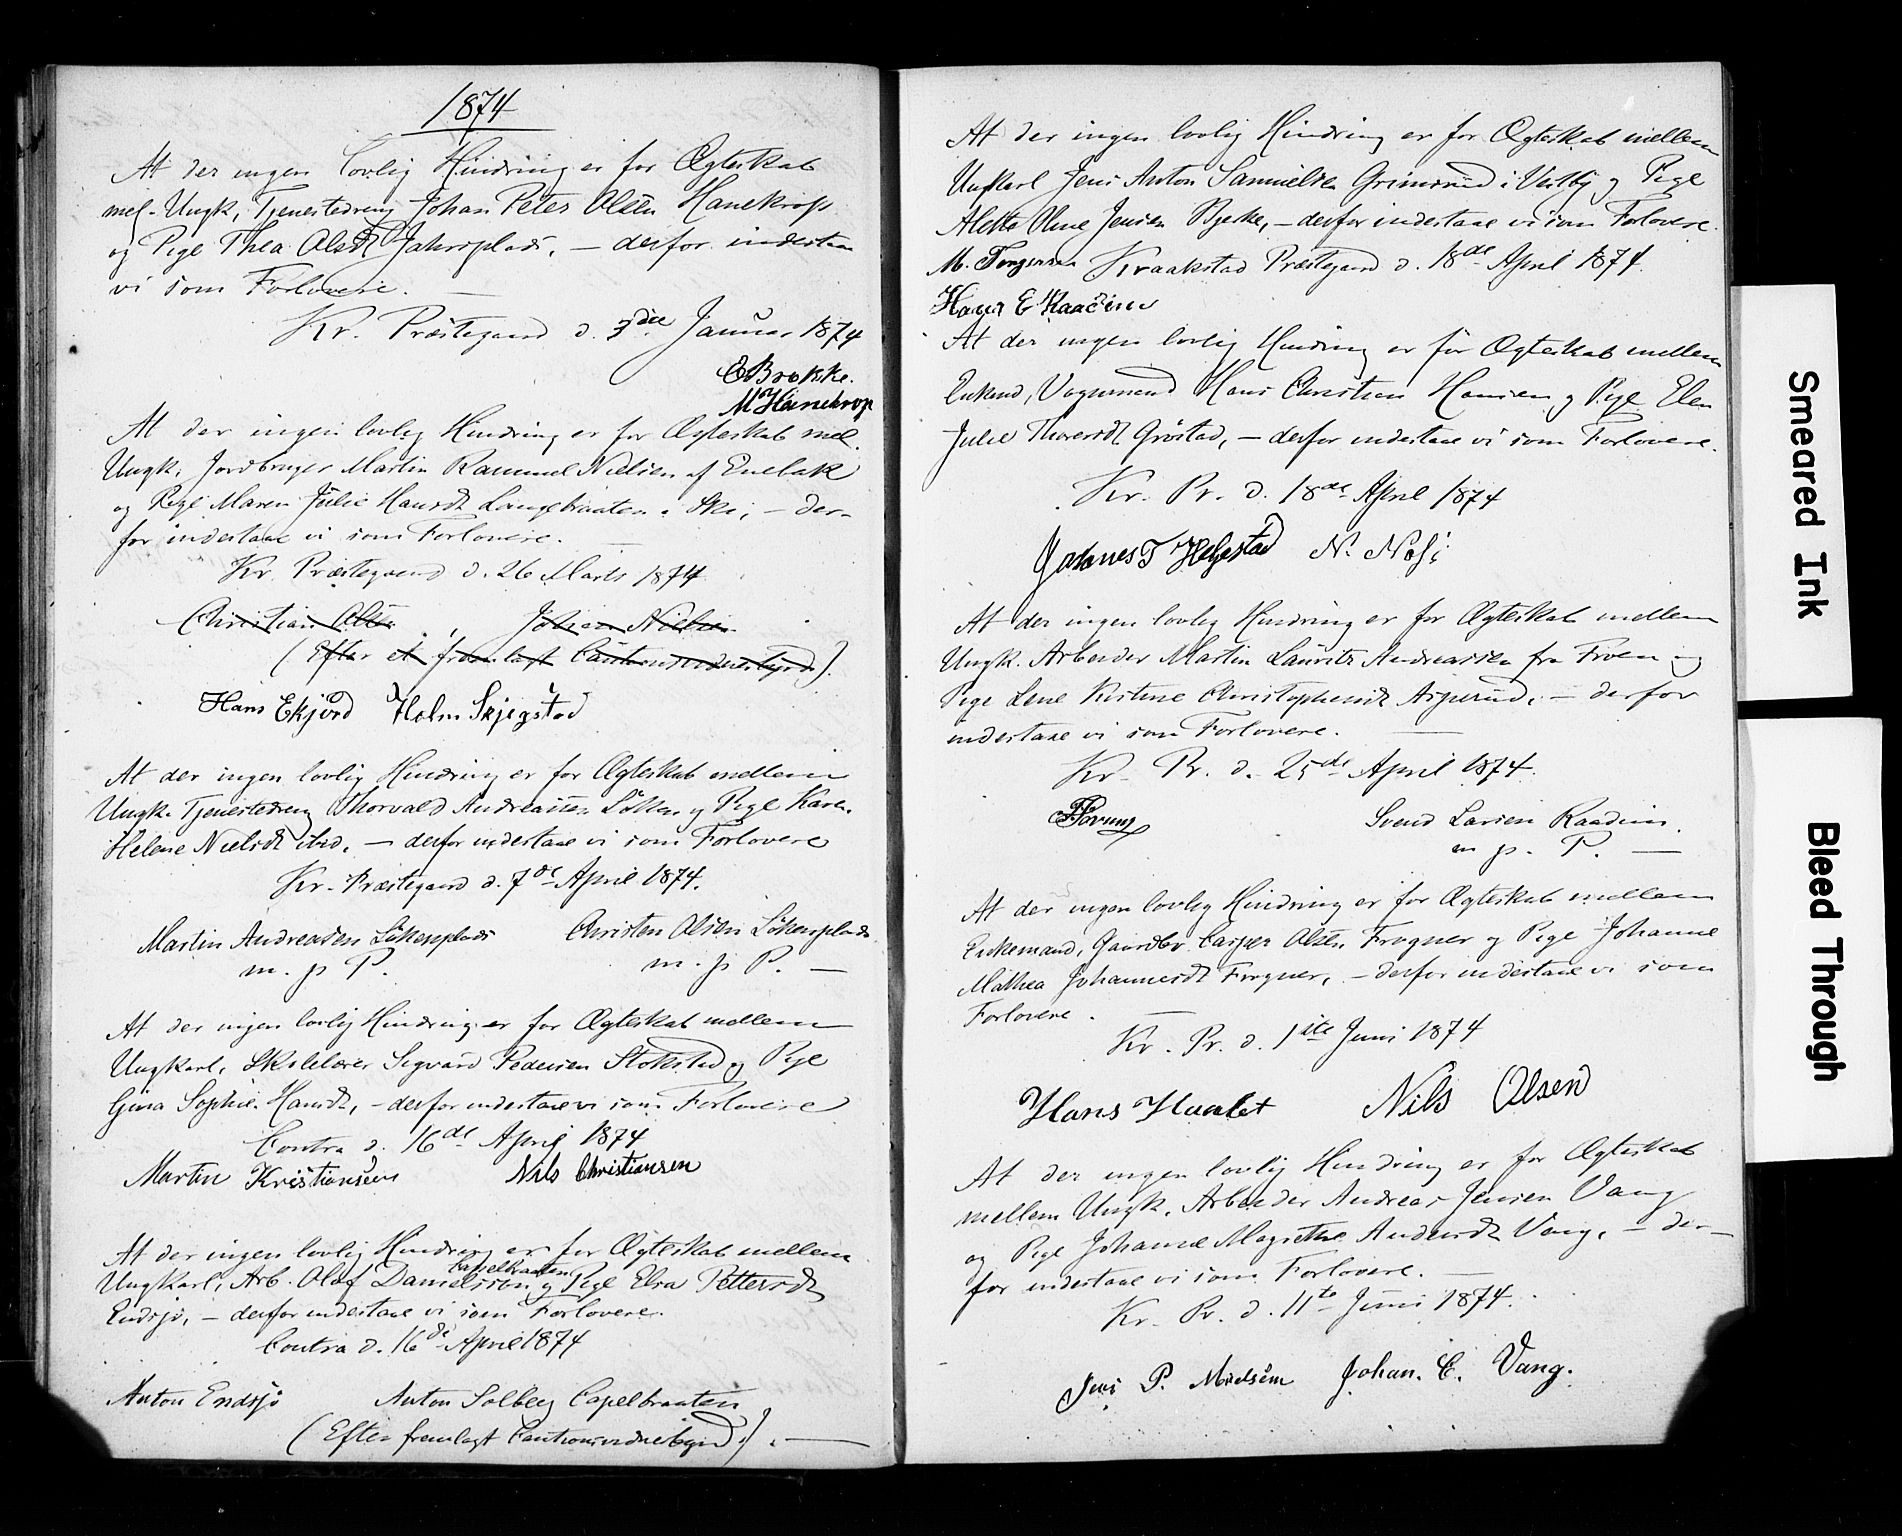 1874
At der ingen lovlig Hindring er for Ægteskab
mel. Ungk, Tjenestedreng Johan Peter Olsen Hanekrop
og Pige Thea Olsdt Jahrsplads, – derfor indestaa
vi som Forlovere.
Kr. Præstegaard d. 3die Januar 1874
E Brekke.
M Hanekrop
At der ingen lovlig Hindring er for Ægteskab mel.
Ungk. Jordbruger Martin Rasmus Nielsen af Enebak
og Pige Maren Julie Hansdt Langebraaten i Ski, – der-
for indestaae vi som Forlovere.
Kr. Præstegaard d. 26 Marts 1874
Christian Olsen, Johan Nielsen
(Efter et fremlagt Cautionsvidnesbyrd).
Hans Ekjord Holm Skjegstad
At der ingen lovlig Hindring er for Ægteskab mellem
Ungk. Tjenestedreng Thorvald Andreassen Löken og Pige Karen
Helene Nielsdt ibid. – derfor indestaae vi som Forlovere
Kr. Præstegaard d. 7de April 1874.
Martin Andreasen Lökenplads Christen Olsen Lökenplads
m. p P. m. p P. –
At der ingen lovlig Hindring er for Ægteskab mellem
Ungkarl, Skolelærer Sigvard Pedersen Stokstad og Pige
Gina Sophie Hansdt, – derfor indestaae vi som Forlovere
Contra d. 16de April 1874
Martin Kristiansen Nils Christiansen
At der ingen lovlig Hindring er for Ægteskab mellem
Capelbraaten
Ungkarl, Arb. Olaf Danielsson og Pige Elra Pettersdt
Endsjö, – derfor indestaae vi som Forlovere.
Contra d. 16de April 1874
Anton Endsjö Anton Solberg Capelbraaten
(Efter fremlagt Cautionsvidnesbyrd). –
At der ingen lovlig Hindring er for Ægteskab mellem
Ungkarl Jens Anton Samuelsen Grimsrud i Vestby og Pige
Alette Oline Jensen Bjerke, – derfor indestaae vi som Forlovere.
M. Torgersen Kraakstad Præstegaard d. 18de April 1874.
Hans E Raadim
At der ingen lovlig Hindring er for Ægteskab mellem
Enkemd, Vognmand Hans Christian Hansen og Pige Elen
Julie Thoresdt Gröstad, – derfor indestaae vi som Forlovere.
Kr. Pr. d. 18de April 1874
Johannes T Helgestad N. Næss
At der ingen lovlig Hindring er for Ægteskab mellem
Ungk. Arbeider Martin Lauritz Andreassen fra Froen og
Pige Lene Kristine Christophersdt Asperud, – derfor
indestaae vi som Forlovere. –
Kr. Pr. d. 25de April 1874.
Svend Larsen Raadim.
m p. P. –
At der ingen lovlig Hindring er for Ægteskab mellem
Enkemand, Gaardbr. Casper Olsen Frogner og Pige Johanne
Mathea Johannesdt Frogner, – derfor indestaae vi som
Forlovere. –
Kr. Pr. d. 1ste Juni 1874
Hans Haalet Nils Olsen
At der ingen lovlig Hindring er for Ægteskab
mellem Ungk. Arbeider Andreas Jensen Vang
og Pige Johanne Magrethe Andersdt Vang, – der-
for indestaae vi som Forlovere. –
Kr. Pr. d. 11te Juni 1874.
Jens P. Madsen Johan. E. Vang.
Smeared Ink
Bleed Through